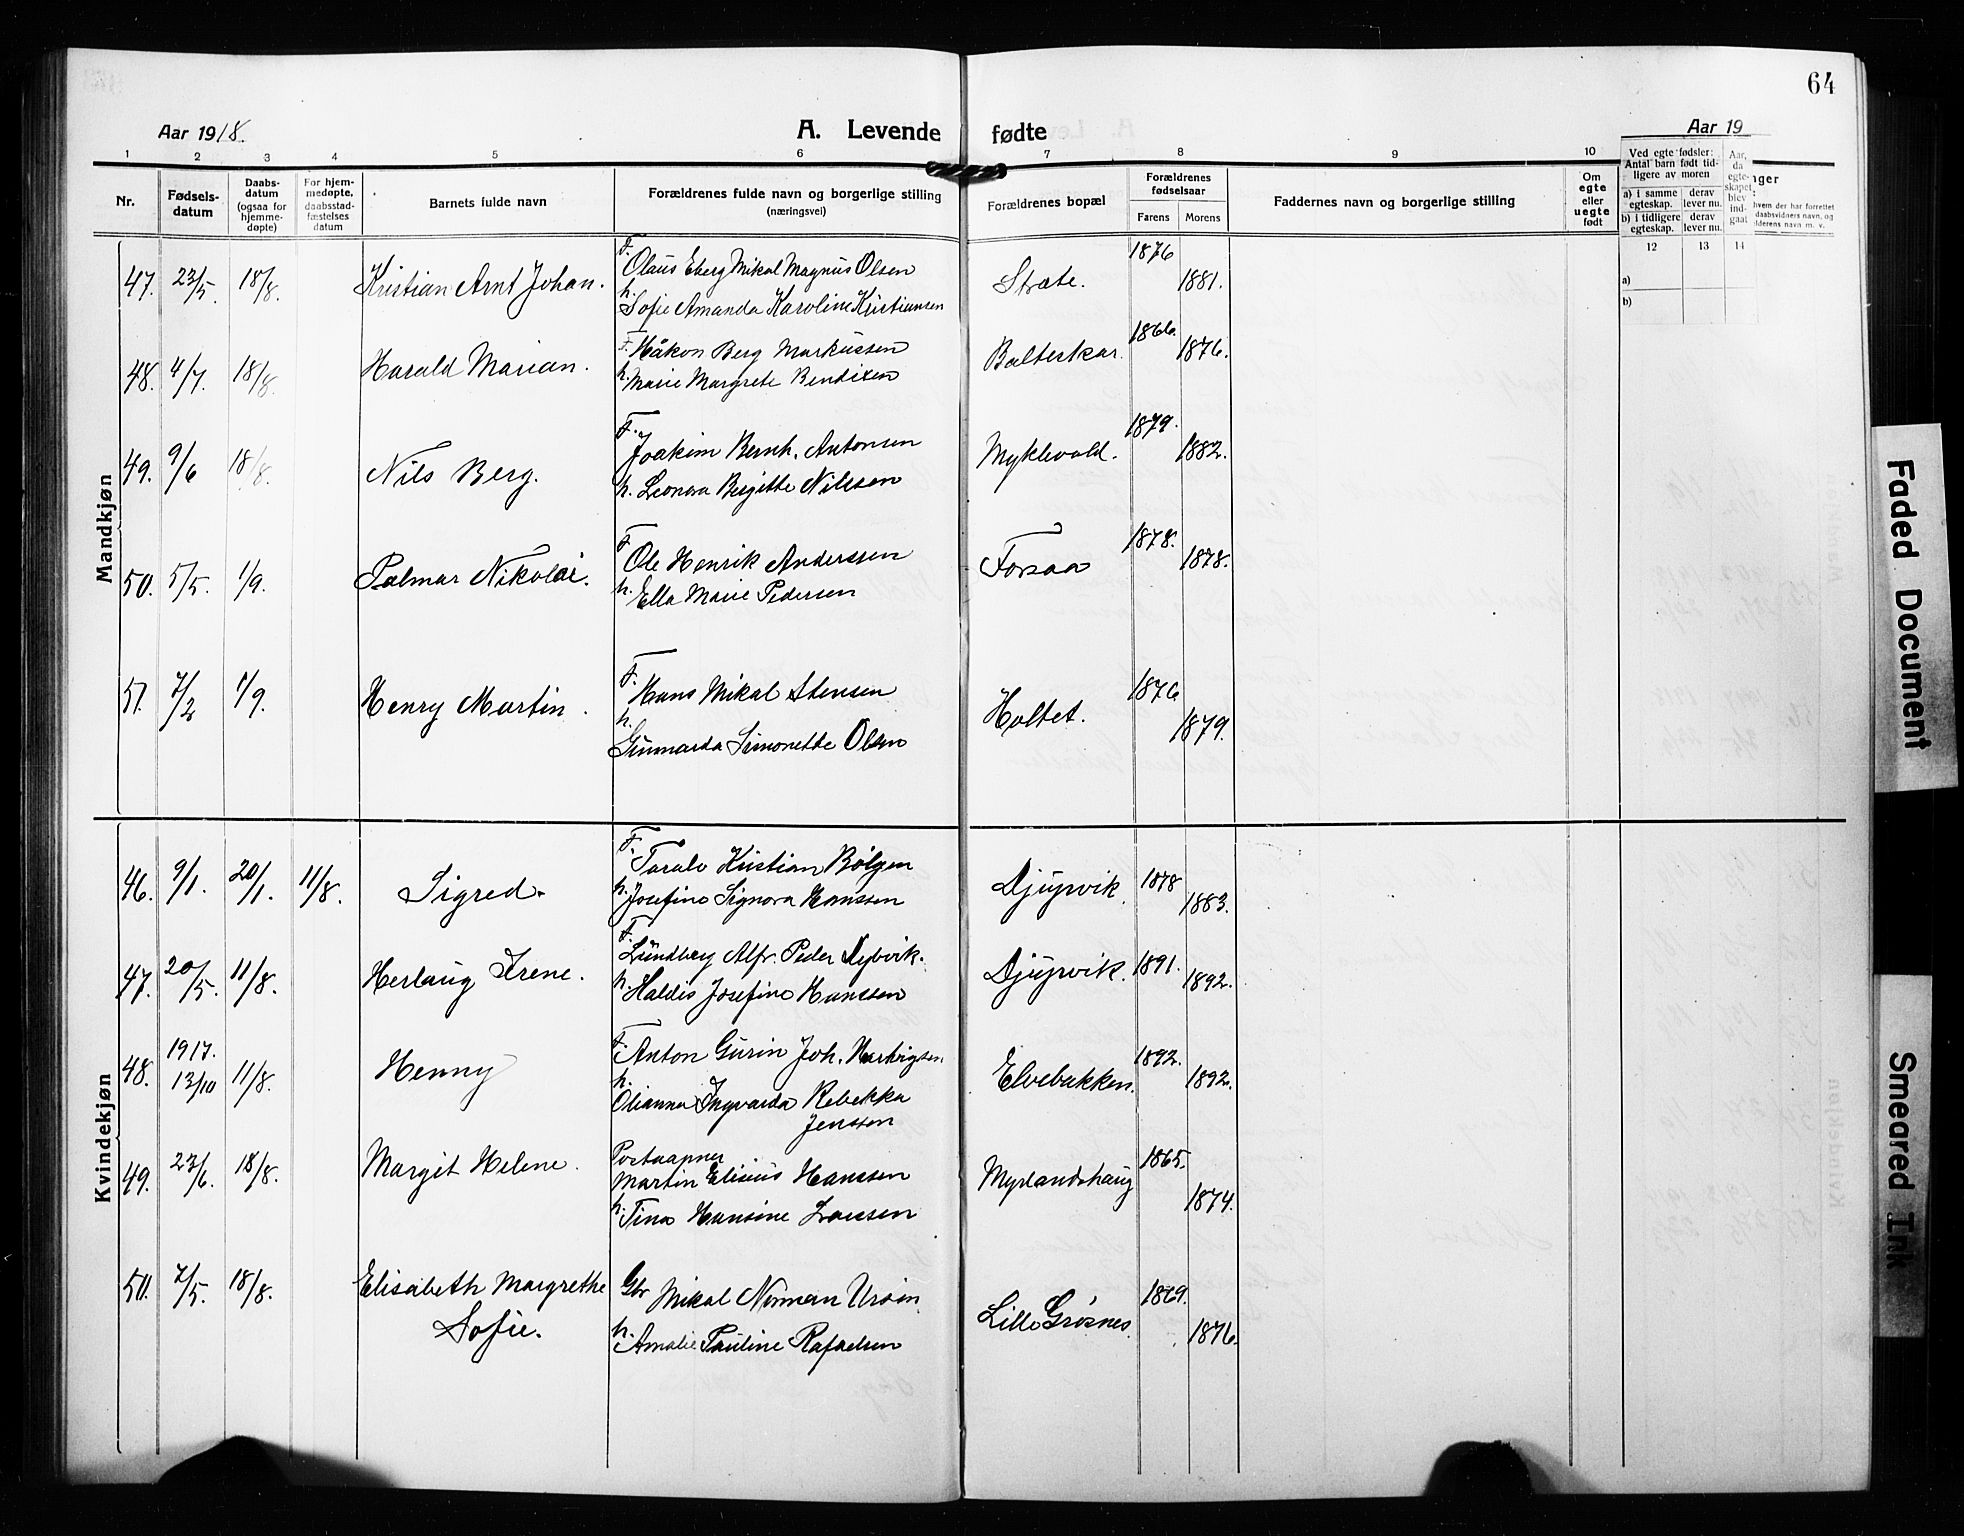 64
Aar 1918.
A. Levende
fødte
Aar 19
1 2 3 4 5 6 7 8 9 10
Nr.
Fødsels-
datum
Daabs-
datum
(ogsaa for
hjemme-
døpte)
For hjem-
medøpte,
daabsstad-
fæstelses
datum
Barnets fulde navn
Forældrenes fulde navn og borgerlige stilling
(næringsvei)
Forældrenes bopæl
Forældrenes
fødselsaar
Farens Morens
Faddernes navn og borgerlige stilling
Om
egte
eller
uegte
født
Ved egte fødsler:
Antal barn født tid-
ligere av moren
a) i samme
egteskap.
b) i tidligere
egteskap.
derav
lever nu.
derav
lever nu.
Aar,
da
egte-
skapet
blev
ind-
gaat
12 13 14
a)
b)
nger
hvem der har forrettet
daabsvidners navn, og
lderens navn m. v.
Mandkjøn
47. 23/5. 18/8. Kristian Arnt Johan.
F. Olaus Eberg Mikal Magnus Olsen
h. Sofie Amanda Karoline Kristiansen
Stræte. 1876 1881.
48. 4/7. 18/8. Harald Marian.
F. Håkon Berg Markussen
h. Marie Margrete Bendixen
Balteskar. 1866. 1876.
49. 9/6 18/8. Nils Berg.
F. Joakim Bernh. Antonsen
h. Leonora Bergitte Nilssen
Myklevold. 1879. 1882.
50. 5/5. 1/9. Palmar Nikolai.
F. Ole Henrik Anderssen
h. Ella Marie Pedersen
Forsaa 1878. 1878.
51. 7/2 1/9. Henry Martin.
F. Hans Mikal Stensen
h. Gunnarda Simonette Olsen
Holtet. 1876 1879.
Kvindekjøn
46. 9/1. 20/1. 11/8. Sigred.
F. Torale Kristian Bølgen
h. Josefine Signora Hanssen
Djupvik. 1878 1883.
47. 20/5. 11/8. Herlaug Irene.
F. Lundberg Alfr. Peder Dybvik.
h. Haldis Josefine Hanssen
Djupvik. 1891. 1892.
48. 1917. 13/10 11/8. Henny
F. Anton Gurin Joh. Hartvigsen
h. Olianna Ingvarda Rebekka
Jenssen
Elvebakken. 1892. 1892.
49. 23/6. 18/8. Margit Helene.
Postaapner
Martin Elisius Hanssen
h. Tina Hansine Larssen
Myrlandshaug 1865. 1874.
50. 7/5. 18/8. Elisabeth Margrethe
Sofie.
Gbr Mikal Norman Ursin
h. Amalie Pauline Rafaelsen
Lille Grøsnes. 1869. 1876.
Faded Document
Smeared Ink